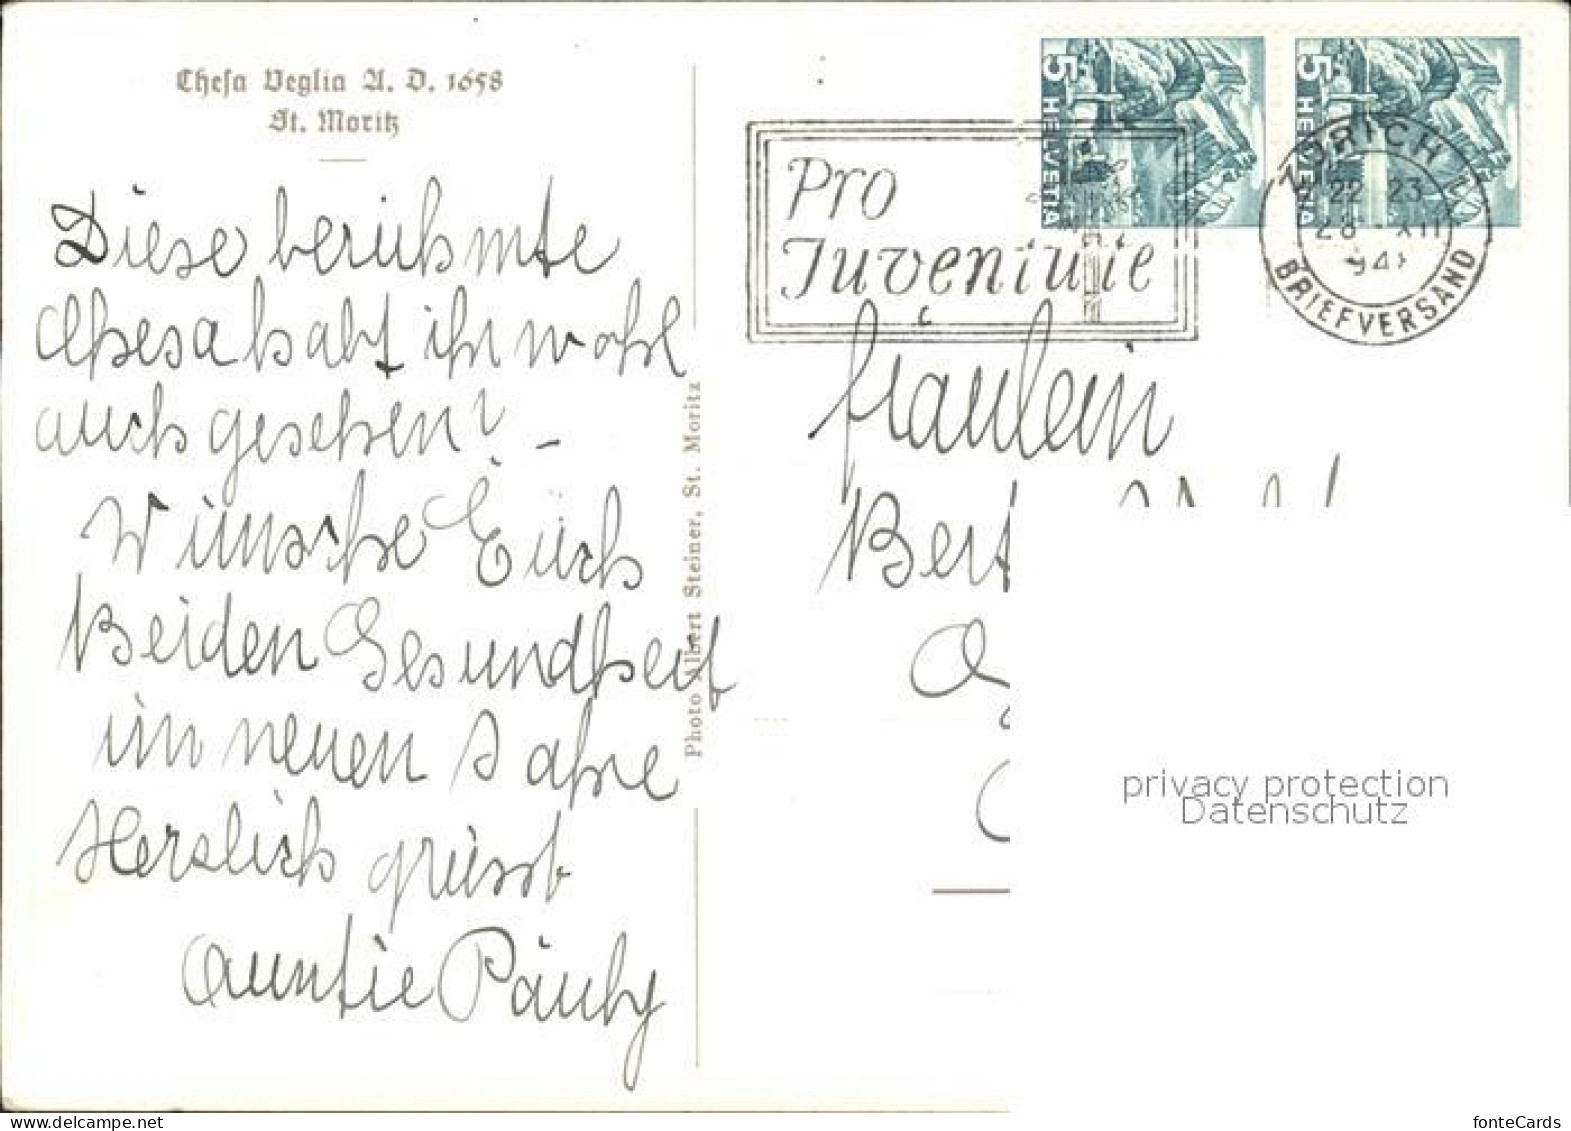 Chesa Veglia A. D. 1658
St. Moritz
Diese berühmte
Chesa habt ihr wohl
auch gesehen? -
Wünsche Euch
Beiden Gesundheit
im neuen Jahre
Herzlich grüsst
Auntie Päuly
Photo Albert Steiner, St. Moritz
Pro
Juventute
5 HELVETIA
5 HELVETIA
ZÜRICH
22 23
28 XII
BRIEFVERSAND
Fräulein
privacy protection
Datenschutz
www.delcampe.net
fonteCards